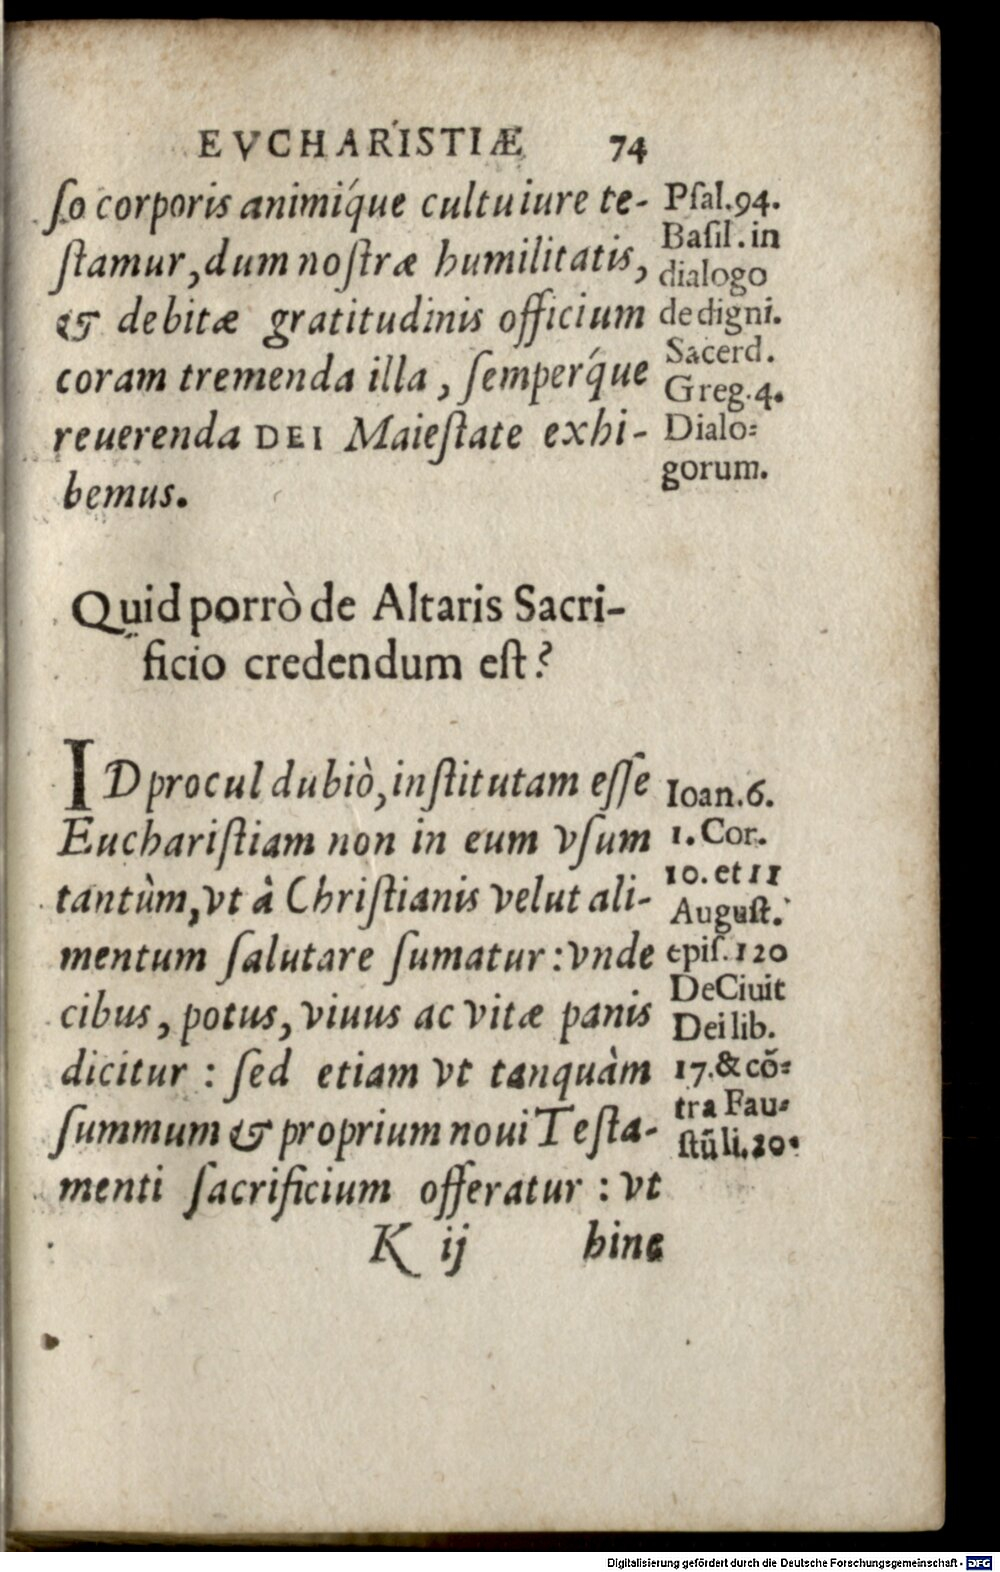 EVCHARISTIÆ 74
ſo corporis animíque cultu iure te-
ſtamur, dum noſtræ humilitatis,
& debitæ gratitudinis officium
coram tremenda illa, ſempérque
reuerenda DEI Maieſtate exhi-
bemus.
Pſal. 94.
Baſil. in
dialogo
de digni.
Sacerd.
Greg. 4.
Dialo-
gorum.
Quid porrò de Altaris Sacri-
ficio credendum eſt?
ID procul dubiò, inſtitutam eſſe
Euchariſtiam non in eum vſum
tantùm, vt à Chriſtianis velut ali-
mentum ſalutare ſumatur: vnde
cibus, potus, viuus ac vitæ panis
dicitur: ſed etiam vt tanquàm
ſummum & proprium noui Teſta-
menti ſacrificium offeratur: vt
Ioan. 6.
1. Cor.
10. et 11
Auguſt.
epiſ. 120
De Ciuit
Dei lib.
17. & cō-
tra Fau-
ſtū li. 20.
K ij hinc
Digitalisierung gefördert durch die Deutsche Forschungsgemeinschaft - DFG